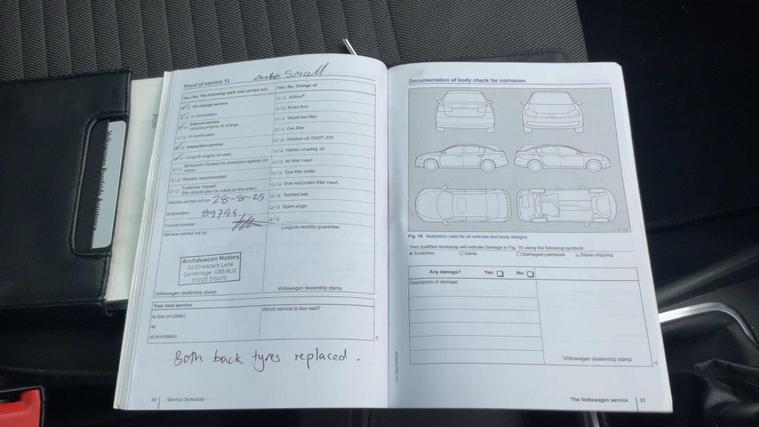 Small
Proof of service 13
Yes / No. The following work was carried out:
Yes / No. Change oil:
Oil change service
AdBlue®
In combination
Brake fluid
Interval service
including engine oil change.
Diesel fuel filter
In combination
Gas filter
Inspection service
Gearbox oil: DSG®, AT
Haldex coupling oil
LongLife engine oil used
Air filter insert
Bodywork checked for protection against corrosion
Tyre filler bottle
Repairs recommended
Dust and pollen filter insert
Customer request
(this should also be noted on the order)
Toothed belt
Service carried out on: 28-8-25
Spark plugs
Invoice number:
Service carried out by:
LongLife mobility guarantee
Archdeacon Motors
52 Cheddars Lane
Cambridge CB5 8LD
01223 315670
Volkswagen dealership stamp
Volkswagen dealership stamp
Your next service
Is due on (date):
Which service is due next?
or
at (km/miles):
Both back tyres replaced.
30 Service Schedule
Documentation of body check for corrosion
Fig. 16 Illustration valid for all vehicles and body designs.
Your qualified workshop will indicate damage in Fig. 16 using the following symbols:
Scratches Dents Damaged paintwork Stone chipping
Any damage? Yes: No:
Description of damage:
Volkswagen dealership stamp
The Volkswagen service 31